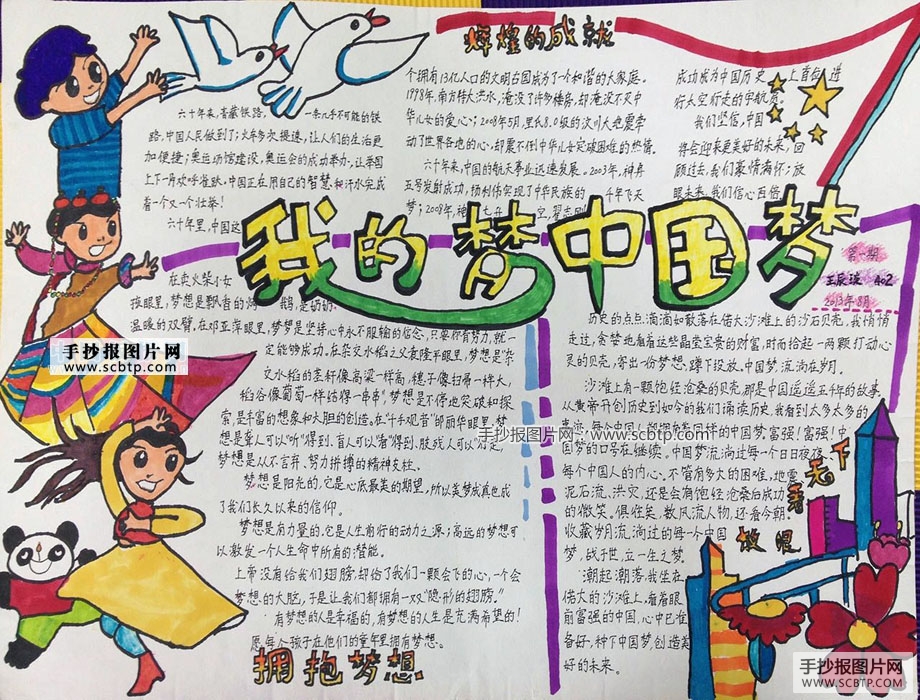 辉煌的成就
六十年来,青藏铁路,一条几乎不可能的铁
路,中国人民做到了;火车多次提速,让人们的生活更
加便捷;奥运场馆建设,奥运会的成功举办,让举国
上下一片欢呼雀跃.中国正在用自己的智慧和汗水完成
着一个又一个壮举!
六十年里,中国这
个拥有13亿人口的文明古国成为了一个和谐的大家庭。
1998年,南方特大洪水,淹没了许多楼房,却淹没不灭中
华儿女的爱心;2008年5月,里氏8.0级的汶川大地震牵
动了世界各地的心,却震不倒中华儿女突破困难的热情。
六十年来,中国的航天事业迅速发展。2003年,神舟
五号发射成功,杨利伟实现了中华民族的一千年飞天
梦;2008年,神
成功成为中国历史上首个进
行太空行走的宇航员。
我们坚信,中国
将会迎来更美好的未来,回
顾过去,我们豪情满怀;放
眼未来,我们信心百倍
我的梦中国梦
第一期
王辰波 402
2013年8月
在卖火柴小女
孩眼里,梦想是飘香的烤鹅,是奶奶
温暖的双臂,在邓亚萍眼里,梦想是坚持心中永不服输的信念,只要你有努力,就一
定能够成功。在杂交水稻之父袁隆平眼里,梦想是"杂
交水稻的茎秆像高粱一样高,穗子像扫帚一样大,
稻谷像葡萄一样结得一串串"。梦想是不停地突破和探
索,是丰富的想象和大胆的创造。在"千手观音"邰丽华眼里,梦
想是聋人可以"听"得到、盲人可以"看"得到、肢残人可以
梦想是从不言弃、努力拼搏的精神支柱。
梦想是阳光的,它是心底最美的期望,所以美梦成真也成
了我们长久以来的信仰。
梦想是有力量的,它是人生前行的动力之源;高远的梦想可
以激发一个人生命中所有的潜能。
上帝没有给我们翅膀,却给了我们一颗会飞的心,一个会
梦想的大脑,于是让我们都拥有一双"隐形的翅膀。"
有梦想的人是幸福的,有梦想的人生是充满希望的!
愿每个孩子在他们的童年里拥有梦想。
拥抱梦想
历史的点点滴滴如散落在偌大沙滩上的沙石贝壳,我悄悄
走过,贪婪地看着这些晶莹宝贵的财富,时而拾起一两颗打动心
灵的贝壳,寄出一份梦想,蹲下投放。中国梦,流淌在岁月。
沙滩上有一颗饱经沧桑的贝壳,那是中国遥遥五千年的故事.
从黄帝开创历史到如今的我们谱读历史,我看到太多太多的
每个中国人都拥有着同样的中国梦.富强!富强!中
国梦的口号在继续。中国梦,流淌过每一个日日夜夜
每个中国人的内心。不管用多大的困难,地震
泥石流、洪灾,还是会有饱经沧桑后成功
的微笑。俱往矣,数风流人物,还看今朝。
收藏岁月流,淌过的每一个中国
梦,战于世,立一生之梦。
潮起潮落,我坐在
偌大的沙滩上,看着眼
前富强的中国,心中已准
备好,种下中国梦,创造美
好的未来。
放眼
天下
手抄报图片网
www.scbtp.com
手抄报图片网 www.scbtp.com
手抄报图片网
WWW.SCBTP.COM